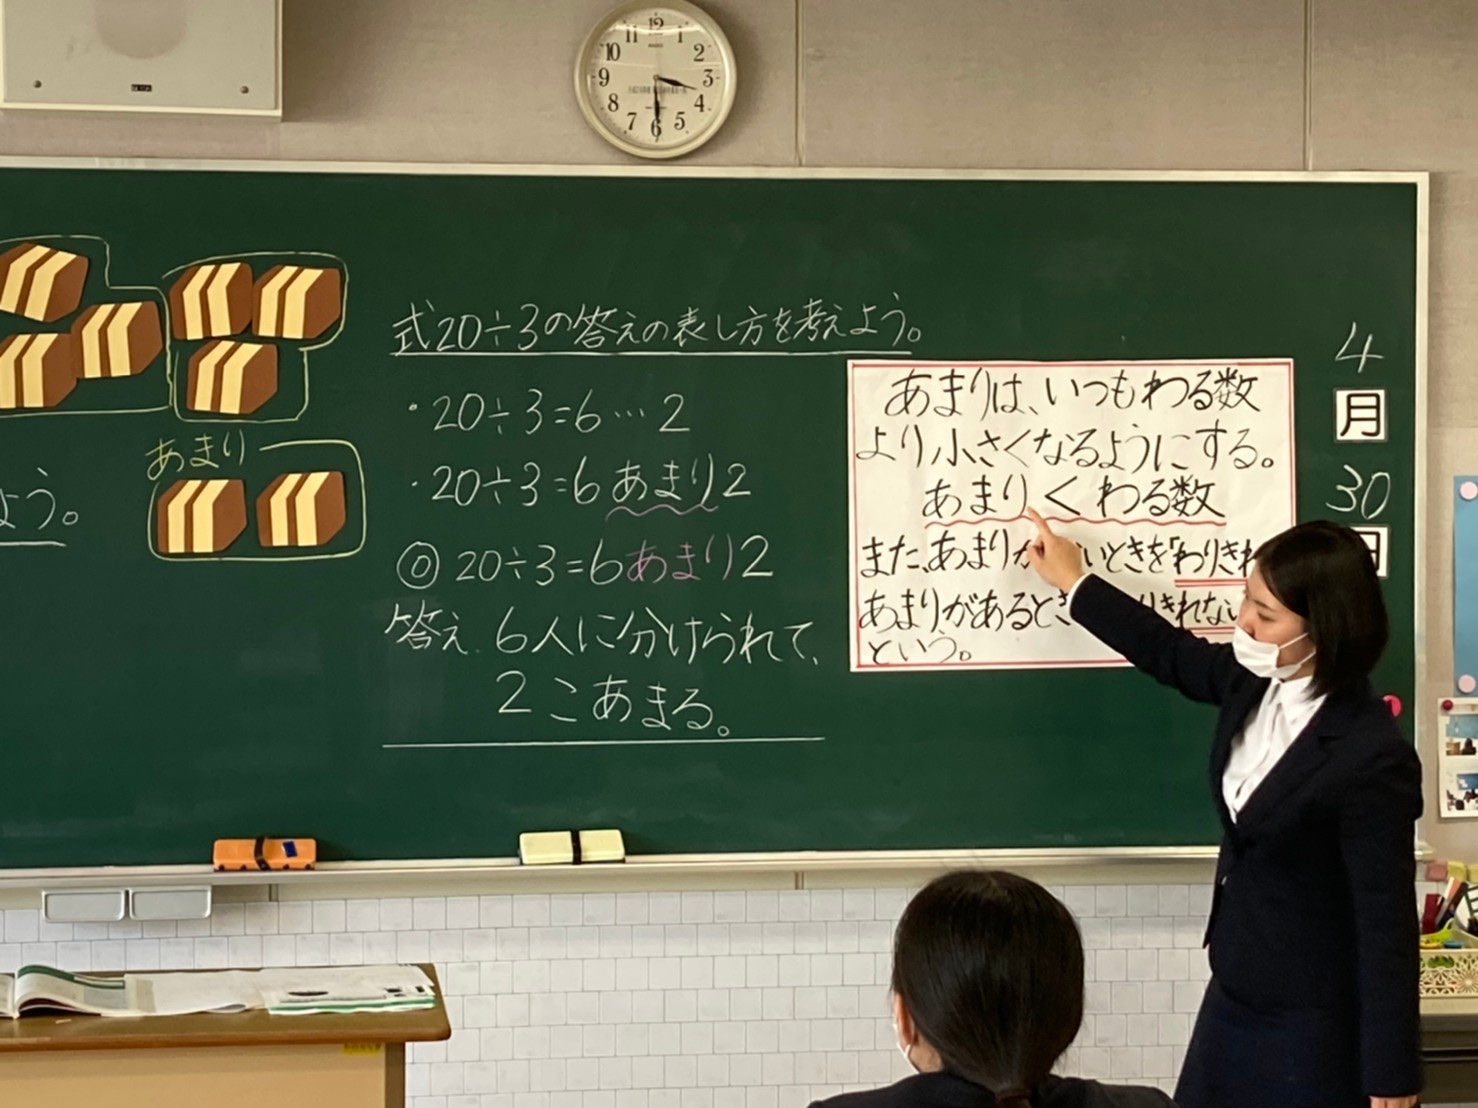 12
11
1
10
2
9
3
8
4
7
5
6
あまり
よう。
式20÷3の答えの表し方を考えよう。
・20÷3=6…2
・20÷3=6あまり2
◎20÷3=6あまり2
答え 6人に分けられて、
2こあまる。
あまりは、いつもわる数
より小さくなるようにする。
あまり<わる数
また、あまりが いときを「わりきれ
あまりがあるとき りきれない
という。
4
月
30
日